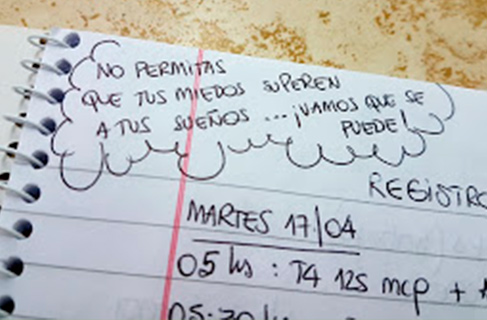 NO PERMITAS
QUE TUS MIEDOS SUPEREN
A TUS SUEÑOS ... ¡VAMOS QUE SE
PUEDE!
REGISTRO
MARTES 17/04
05 hs : T4 125 mcp +